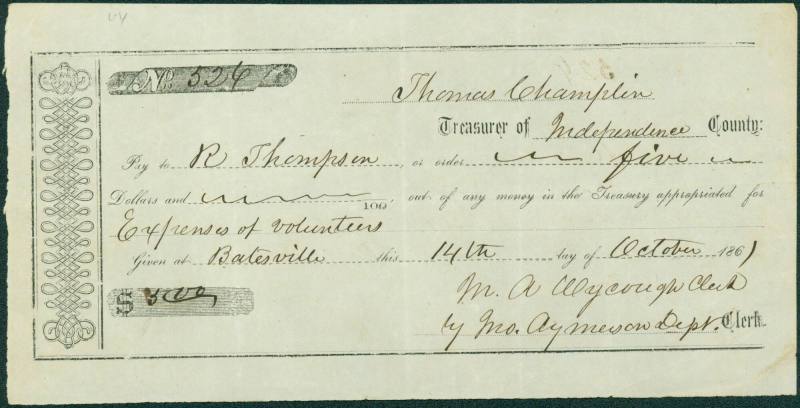 No. 526
Thomas Champlin
Treasurer of Independence County:
Pay to R Thompson, or order five
Dollars and /100, out of any money in the Treasury appropriated for
Expenses of volunteers
Given at Batesville this 14th day of October 1861
$ 5.00
M. A Wycough Clerk
by Jno. Aymerson Dept. Clerk.